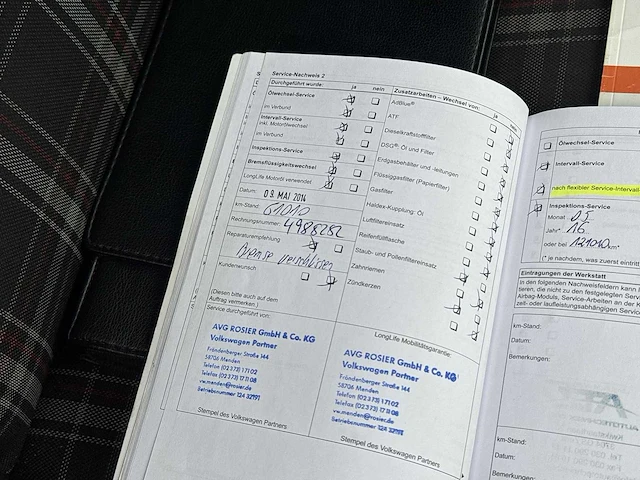 Service-Nachweis 2
Durchgeführt wurde: ja nein
Ölwechsel-Service
im Verbund
Intervall-Service
inkl. Motorölwechsel
im Verbund
Inspektions-Service
Bremsflüssigkeitswechsel
LongLife Motoröl verwendet
Datum: 09. MAI 2014
km-Stand: 61010
Rechnungsnummer: 4988282
Reparaturempfehlung
Bremse verschlissen
Kundenwunsch
(Diesen bitte auch auf dem
Auftrag vermerken.)
Service durchgeführt von:
AVG ROSIER GmbH & Co. KG
Volkswagen Partner
Fröndenberger Straße 144
58706 Menden
Telefon (02373) 17102
Telefax (02373) 171108
vw.menden@rosier.de
Betriebsnummer 124 32191
Stempel des Volkswagen Partners
Zusatzarbeiten – Wechsel von: ja
AdBlue®
ATF
Dieselkraftstofffilter
DSG®: Öl und Filter
Erdgasbehälter und -leitungen
Flüssiggasfilter (Papierfilter)
Gasfilter
Haldex-Kupplung: Öl
Luftfiltereinsatz
Reifenfüllflasche
Staub- und Pollenfiltereinsatz
Zahnriemen
Zündkerzen
LongLife Mobilitätsgarantie:
AVG ROSIER GmbH & Co. KG
Volkswagen Partner
Fröndenberger Straße 144
58706 Menden
Telefon (02373) 17102
Telefax (02373) 171108
vw.menden@rosier.de
Betriebsnummer 124 32191
Stempel des Volkswagen Partners
Ölwechsel-Service
Intervall-Service
nach flexibler Service-Intervall
Inspektions-Service
Monat 05
Jahr* 16
oder bei 121010 km*
(* je nachdem, was zuerst eintritt
Eintragungen der Werkstatt
In den folgenden Nachweisfeldern kann
tieren, die nicht zu den festgelegten Serv
Airbag-Moduls, Service-Arbeiten an der K
zeit- oder laufleistungsabhängigen Servic
km-Stand:
Datum:
Bemerkungen:
km-Stand:
Datum:
Bemerkungen: